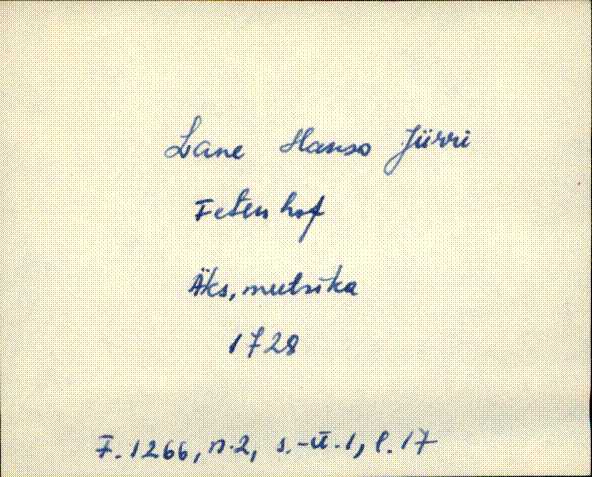 Lane Hanso Jürri
Fetenhof
Äks, meetrika
1728
F. 1266, n. 2, s.-ü. 1, l. 17